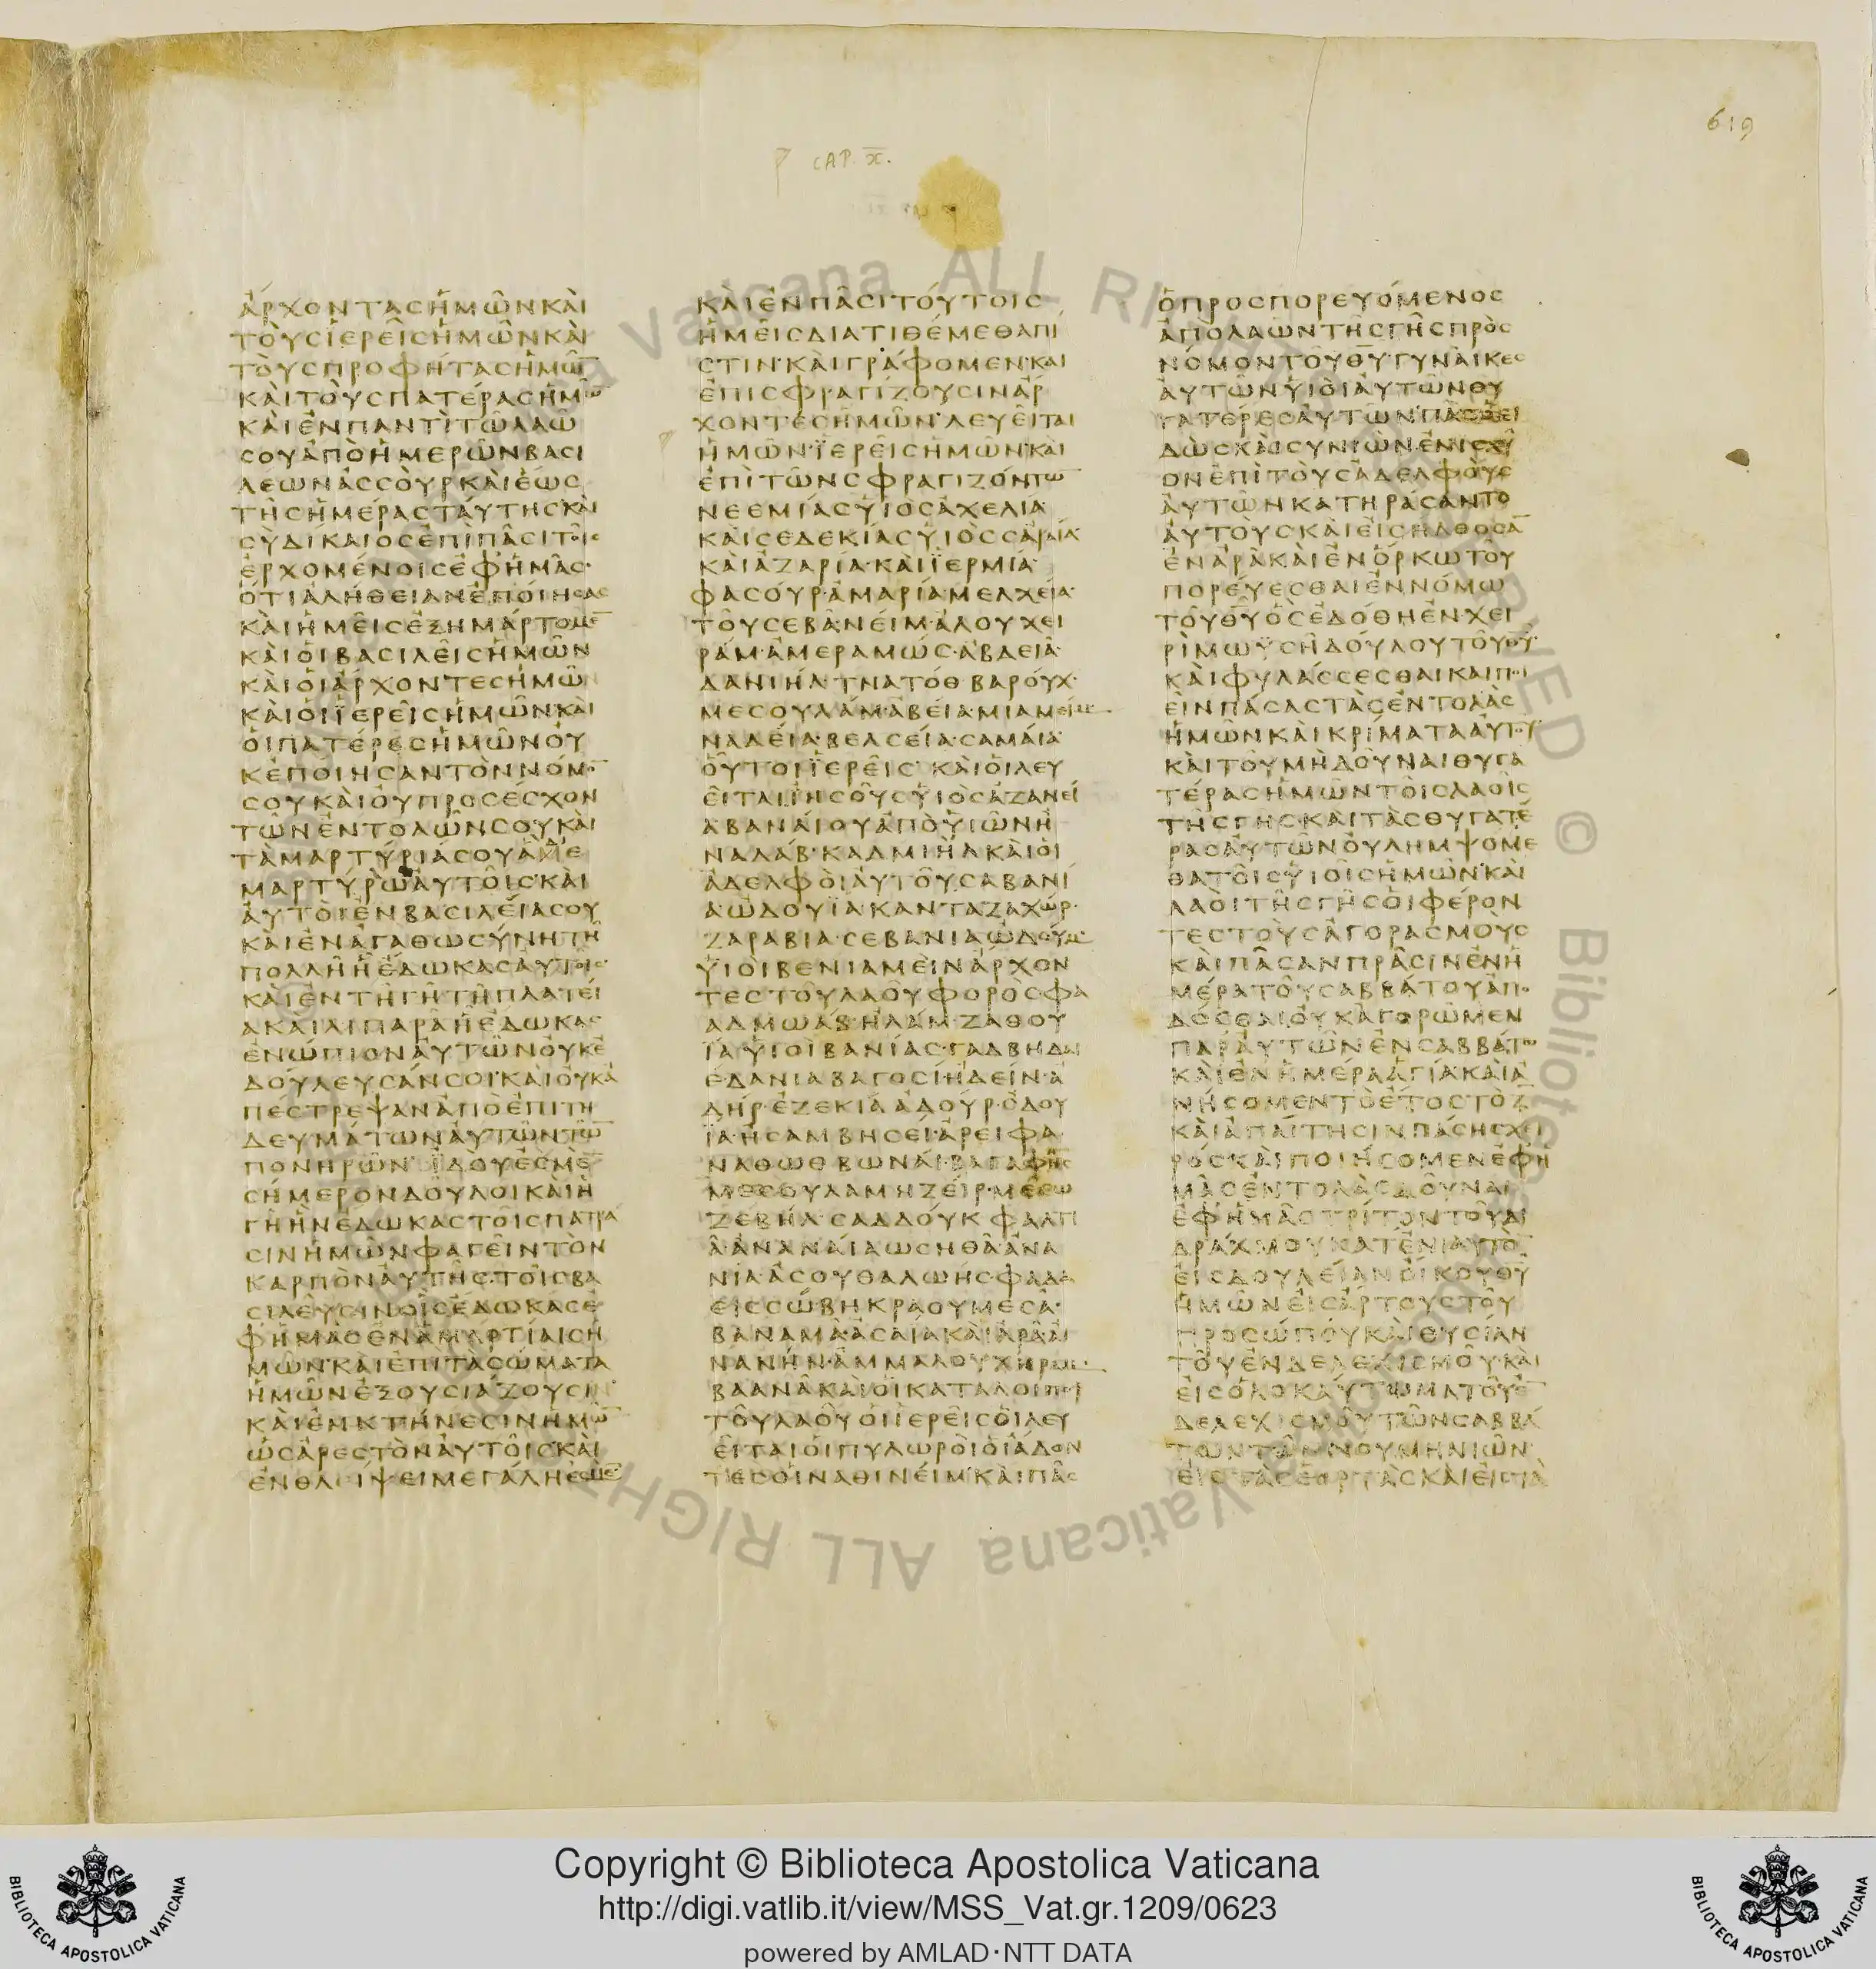 619
CAP. X.
ἄρχοντας ἡμῶν καὶ
τοὺς ἱερεῖς ἡμῶν καὶ
τοὺς προφήτας ἡμῶ̅
καὶ τοὺς πατέρας ἡμῶ̅
καὶ ἐν παντὶ τῷ λαῷ
σου ἀπὸ ἡμερῶν βασι
λέων ἀσσοὺρ καὶ ἕως
τῆς ἡμέρας ταύτης καὶ
σὺ δίκαιος ἐπὶ πᾶσι τοῖς
ἐρχομένοις ἐφ ἡμᾶς·
ὅτι ἀλήθειαν ἐποίησας
καὶ ἡμεῖς ἐξημάρτομε̅
καὶ οἱ βασιλεῖς ἡμῶν
καὶ οἱ ἄρχοντες ἡμῶν
καὶ οἱ ϊερεῖς ἡμῶν καὶ
οἱ πατέρες ἡμῶν οὐ
κ ἐποίησαν τὸν νόμο̅
σου καὶ οὐ προσέσχον
τῶν ἐντολῶν σου καὶ
τὰ μαρτύριά σου ἃ διε
μαρτύρω αὐτοῖς· καὶ
αὐτοὶ ἐν βασιλείᾳ σου
καὶ ἐν ἀγαθωσύνῃ τῇ
πολλῇ ᾗ ἔδωκας αὐτοῖς
καὶ ἐν τῇ γῇ τῇ πλατεί
ᾳ καὶ λιπαρᾷ ᾗ ἔδωκας
ἐνώπιον αὐτῶν οὐκ ἐ
δούλευσάν σοι· καὶ οὐκ ἀ
πέστρεψαν ἀπὸ ἐπιτη
δευμάτων αὐτῶν τῶ̅
πονηρῶν· ἰδού ἐσμε̅
σήμερον δοῦλοι καὶ ἡ
γῆ ἣν ἔδωκας τοῖς πατρά
σιν ἡμῶν φαγεῖν τὸν
καρπὸν αὐτῆς· τοῖς βα
σιλεῦσιν οἷς ἔδωκας ἐ
φ ἡμᾶς ἐν ἁμαρτίαις ἡ
μῶν· καὶ ἐπὶ τὰ σώματα
ἡμῶν ἐξουσιάζουσιν
καὶ ἐν κτήνεσιν ἡμῶ̅
ὡς ἀρεστὸν αὐτοῖς καὶ
ἐν θλείψει μεγάλῃ ἐσμέ̅
καὶ ἐν πᾶσι τούτοις
ἡμεῖς διατιθέμεθα πί
στιν· καὶ γράφομεν· και
ἐπισφραγίζουσιν ἄρ
χοντες ἡμῶν· λευεῖται
ἡμῶν· ϊερεῖς ἡμῶν· καὶ
ἐπὶ τῶν σφραγιζόντω̅
νεεμίας υἱὸς ἀχελιά·
καὶ σεδεκίας υἱὸς σαραία·
καὶ ἀζαρία· καὶ ϊερμία·
φασούρ· ἀμαρία μελχεία·
τοὺς εβανείμ· ἀλουχει
ράμ· ἀμεραμώς· ἀβδειά·
δανιήλ τνατόθ βαρούχ·
μεσουλάμ· ἀβεία· μιαμείμ·
ναδεία· βελσεία· σαμαία·
οὗτοι ϊερεῖς· καὶ οἱ λευ
εῖται ἰησοῦς υἱὸς ἀζανεί
αβαναιου ἀπὸ υἱῶν ἡ
ναλάβ· καδμιὴλ καὶ οἱ
ἀδελφοὶ αὐτοῦ σαβανι
ά ὠδουϊα· καντα ζαχώρ·
ζαραβια· σεβανια ὠδούμ·
υἱοὶ βενιαμεὶν ἄρχον
τες τοῦ λαοῦ φορὸς· φα
αλμωάβ· ἠλάμ· ζαθου
ΐα υἱοὶ βανίας· γαδ βηδαι
ἐδανια βαγοσι ἡδείν· ἀ
δήρ· ἐζεκιά ἀδούρ· ὀδου
ΐα· ἡσάμ βησεί· ἀρειφα
ναθὼθ βωναί· βαγαφής
μεσουλάμ ηζείρ· μεσω
ζεβήλ· σαδδούκ φαλτι
ά· ἀναναία ὡσηθᾶ· ἀνα
νία· ἀσουθ ἁλωής· φαδα
εις σώβηκ ραουμ εσα·
βαναμὰ· ἀσαία καὶ ἀρα· αἰ
νανήν· ἀμμαλουχ ηράμ·
βαανὰ καὶ οἱ κατάλοιποι
τοῦ λαοῦ οἱ ϊερεῖς οἱ λευ
εῖται οἱ πυλωροὶ οἱ ᾄδον
τες οἱ ναθινείμ· καὶ πᾶς
ὁ προσπορευόμενος
ἀπὸ λαῶν τῆς γῆς πρὸς
νόμον τοῦ θ̅υ̅· γυναῖκες
αὐτῶν υἱοὶ αὐτῶν θυ
γατέρες αὐτῶν· πᾶς ὁ εἰ
δὼς καὶ συνιὼν· ἐνίσχυ
ον ἐπὶ τοὺς ἀδελφοὺς
αὐτῶν κατηράσαντο
αὐτοὺς καὶ εἰσήλθοσα̅
ἐν ἀρᾷ καὶ ἐν ὅρκῳ τοῦ
πορεύεσθαι ἐν νόμῳ
τοῦ θ̅υ̅ ὃς ἐδόθη ἐν χει
ρὶ μωυσῆ δούλου τοῦ θ̅υ̅·
καὶ φυλάσσεσθαι καὶ ποι
εῖν πάσας τὰς ἐντολὰς
ἡμῶν καὶ κρίματα αὐτοῦ
καὶ τοῦ μὴ δοῦναι θυγα
τέρας ἡμῶν τοῖς λαοῖς
τῆς γῆς· καὶ τὰς θυγατέ
ρας αὐτῶν οὐ λημψόμε
θα τοῖς υἱοῖς ἡμῶν· καὶ
λαοὶ τῆς γῆς οἱ φέρον
τες τοὺς ἀγορασμοὺς
καὶ πᾶσαν πρᾶσιν ἐν ἡ
μέρᾳ τοῦ σαββάτου ἀπο
δόσθαι οὐκ ἀγορῶμεν
παρ αὐτῶν ἐν σαββάτῳ
καὶ ἐν ἡμέρᾳ ἁγίᾳ καὶ ἀ
νήσομεν τὸ ἔτος τὸ ζ̅
καὶ ἀπαίτησιν πάσης χει
ρός καὶ ποιήσομεν ἐφ ἡ
μᾶς ἐντολὰς δοῦναι
ἐφ ἡμᾶς τρίτον τοῦ δι
δράχμου κατ ἐνιαυτὸ̅
εἰς δουλείαν οἴκου θ̅υ̅
ἡμῶν εἰς ἄρτους τοῦ
προσώπου καὶ θυσίαν
τοῦ ἐνδελεχισμοῦ· καὶ
εἰς ὁλοκαύτωμα τοῦ ἐ̅
δελεχισμοῦ τῶν σαββά
των τῶν νουμηνιῶν·
εἰς τὰς ἑορτὰς καὶ εἰς τὰ
Copyright © Biblioteca Apostolica Vaticana
http://digi.vatlib.it/view/MSS_Vat.gr.1209/0623
powered by AMLAD·NTT DATA
BIBLIOTECA APOSTOLICA VATICANA
BIBLIOTECA APOSTOLICA VATICANA